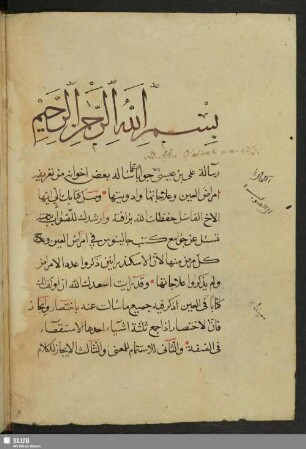 بسم الله الرحمن الرحيم
رسالة علي بن عيسى جوابا عما ساله بعض اخوانه من تعريف
امراض العين وعلاجاتها وادويتها وصل كتابك ايها
الاخ الفاضل حفظك الله برافته وارشدك للصواب
تسئل عن جوامع كتب جالينوس في امراض العين
كل مرض منها لان الاسكندرانيين ذكروا عدد الامراض
ولم يذكروا علاجاتها وقد رايت اسعدك الله ان اولف لك
كتابا في العين اذكر فيه جميع ما سالت عنه باختصار وايجاز
فان الاختصار اذا جمع ثلثة اشياء احدها الاستقصاء
في القسمة والثاني للاستتمام المعنى والثالث الايجاز للكلام
SLUB
Wir führen Wissen.